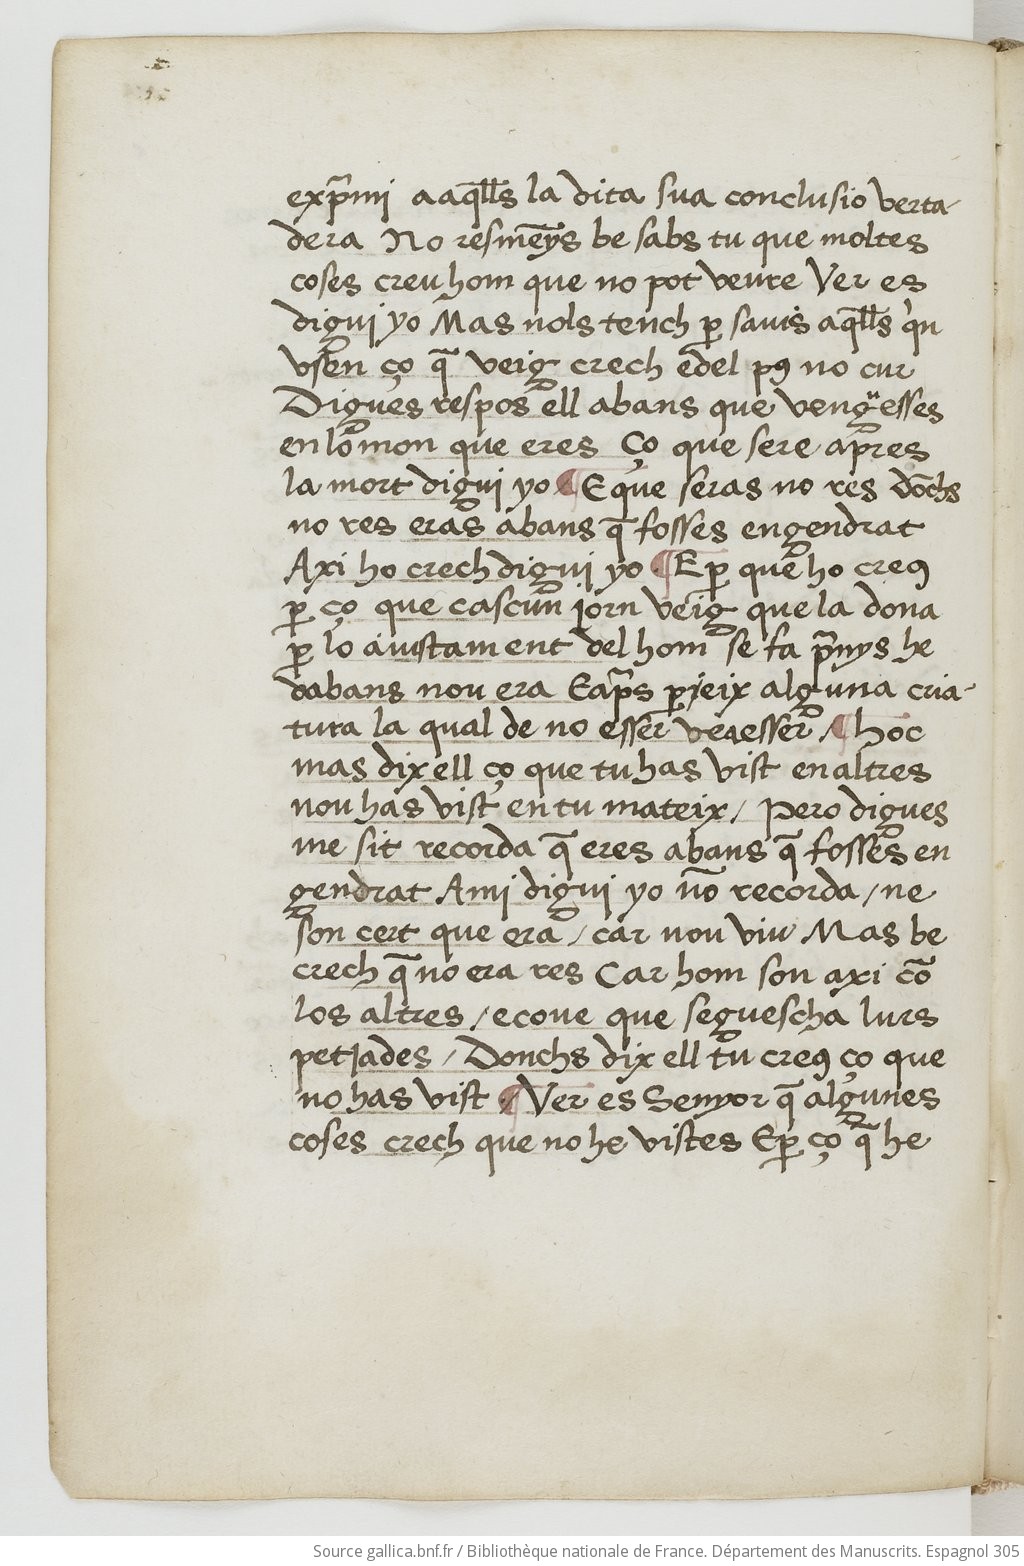 exp̃mi aaq̃lls la dita sua conclusio verta-
dera No resmẽys be sabs tu que moltes
coses creu hom que no pot veure Ver es
digui yo Mas nols tench ꝑ sauis aq̃lls q̉n
vsen ço q̃ veig crech edel pꝰ no cur
Digues respos ell abans que venguesses
en lo mon que eres Ço que sere apres
la mort digui yo ¶ E que seras no res dõchs
no res eras abans q̃ fosses engendrat
Axi ho crech digui yo ¶ E ꝑ que ho creꝰ
ꝑ ço que cascun jorn veig que la dona
ꝑ lo aiustament del hom se fa p̃nys he
dabans nou era E ap̃s ꝑieix alguna cria-
tura la qual de no esser ve a esser / ¶ hoc
mas dix ell ço que tu has vist en altres
nou has vist en tu mateix / Pero digues
me sit recorda q̃ eres abans q̃ fosses en
gendrat Ami digui yo nõ recorda / ne
son cert que era / car nou viu Mas be
crech q̃ no era res Car hom son axi cõ
los altres / e coue que seguescha lurs
petjades / Donchs dix ell tu creꝰ ço que
no has vist ¶ Ver es Senyor q̃ algunes
coses crech que no he vistes E ꝑ ço q̃ he
Source gallica.bnf.fr / Bibliothèque nationale de France. Département des Manuscrits. Espagnol 305